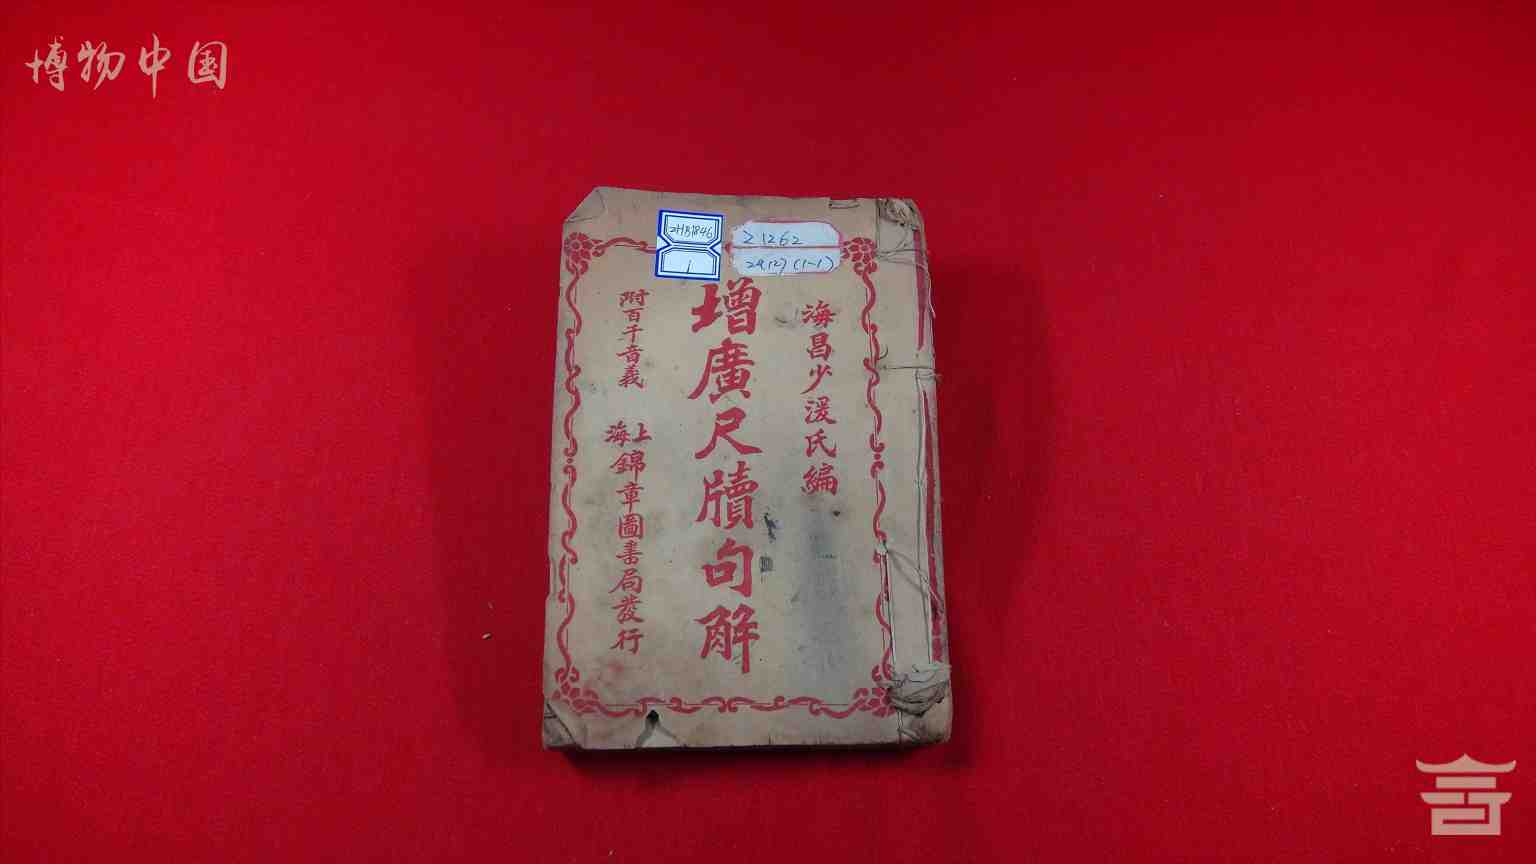 博物中国
2HB1846
1
Z1262
24(12)(1-1)
海昌少湲氏編
增廣尺牘句解
附百千音義
上海
錦章圖書局發行